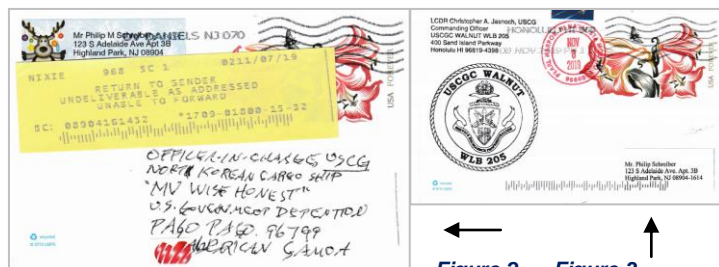 Mr Philip M Schreiber
123 S Adelaide Ave Apt 3B
Highland Park, NJ 08904
DANIELS NJ 070
NIXIE 968 SC 1 0211/07/19
RETURN TO SENDER
UNDELIVERABLE AS ADDRESSED
UNABLE TO FORWARD
BC: 08904161432 *1709-01800-15-32
USA FOREVER
OFFICER-IN-CHARGE, USCG
NORTH KOREAN CARGO SHIP
"MV WISE HONEST"
U.S. GOVERNMENT DETENTION
PAGO PAGO 96799
AMERICAN SAMOA
LCDR Christopher A. Jasnoch, USCG
Commanding Officer
USCGC WALNUT WLB 205
400 Sand Island Parkway
Honolulu HI 96819-4398
HONOLULU
NOV
2019
USA FOREVER
USCGC WALNUT
WLB 205
Mr. Philip Schreiber
123 S Adelaide Ave Apt 3B
Highland Park, NJ 08904-1614
Figure 2
Figure 3